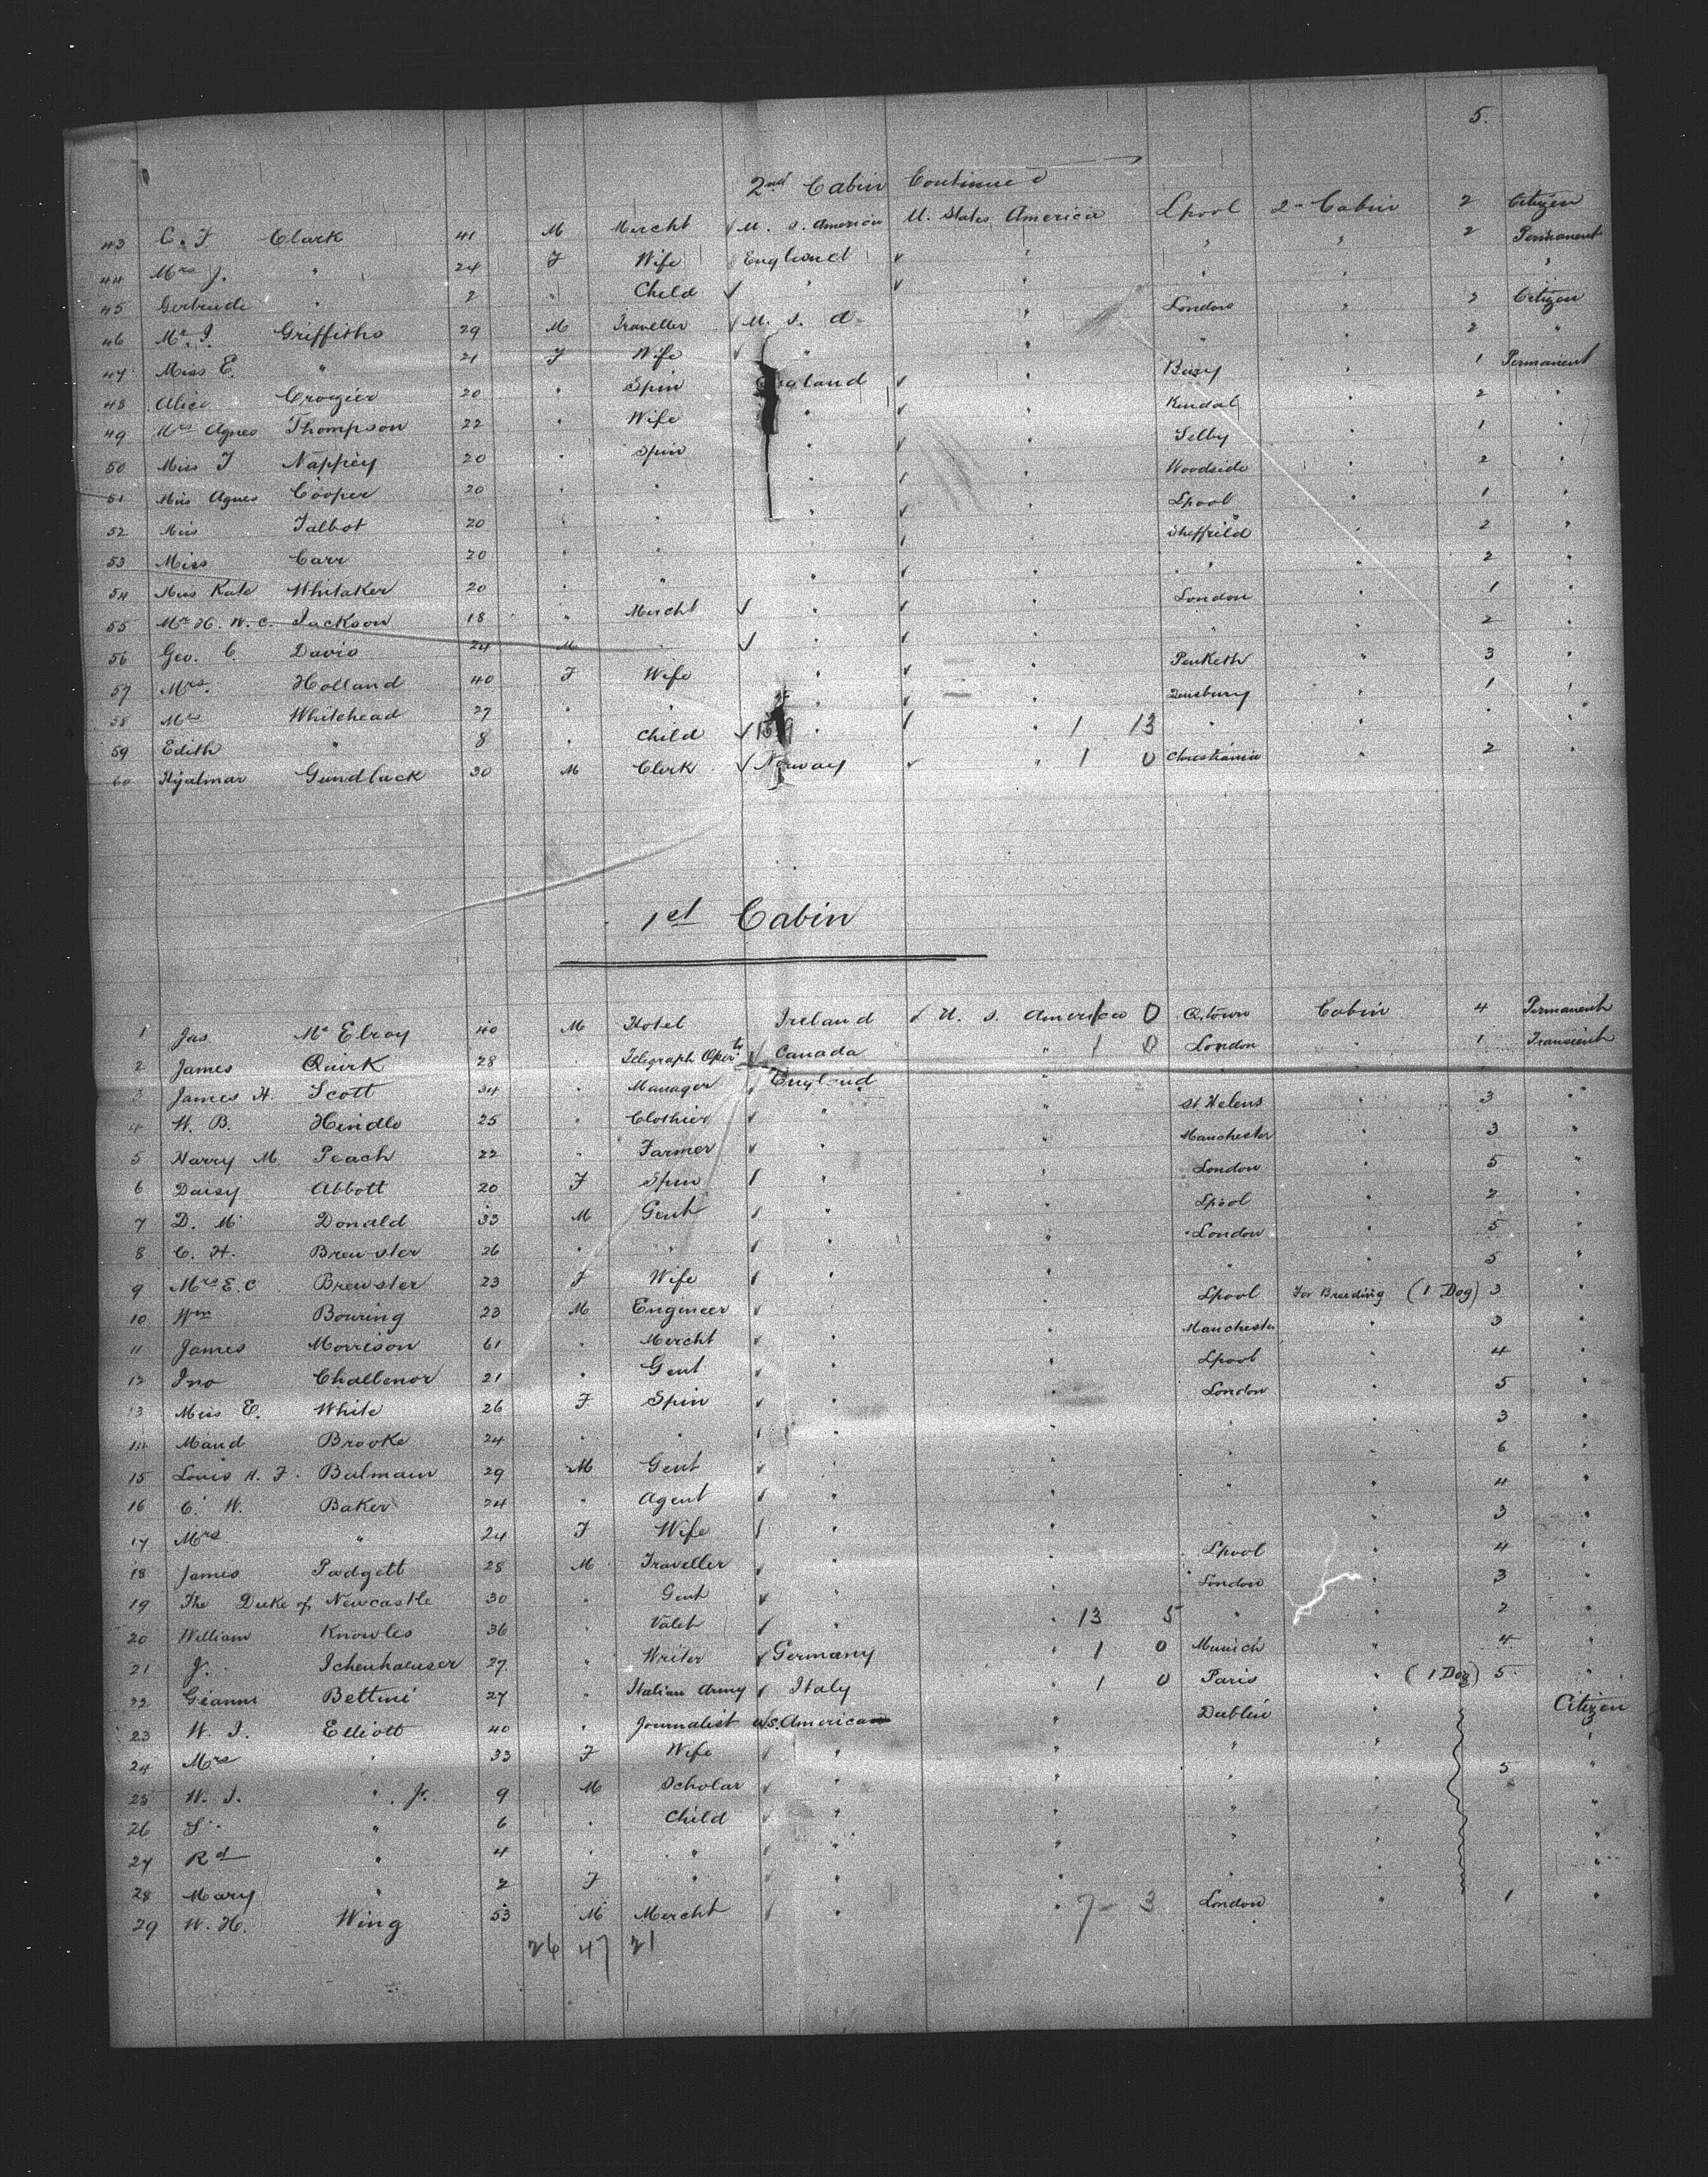 5.
2nd Cabin Continued
43 C. F. Clark 41 M Mercht U. S. America U. States America Lpool 2- Cabin 2 Citizen
44 Mrs J. " 24 F Wife England " " " 2 Permanent
45 Gertrude " 2 " Child " " " " "
46 Mr. J. Griffiths 29 M Traveller U. S. A " London " 2 Citizen
47 Miss E. " 21 F Wife " " " " 2 "
48 Alice Crozier 20 " Spin England " Bury " 1 Permanent
49 Mrs Agnes Thompson 22 " Wife " " Kendal " 2 "
50 Miss J Nappey 20 " Spin " " Selby " 1 "
51 Miss Agnes Cooper 20 " " " " Woodside " 2 "
52 Miss Talbot 20 " " " " Lpool " 1 "
53 Miss Carr 20 " " " " Sheffield " 2 "
54 Miss Kate Whitaker 20 " " " " " " 2 "
55 Mr H. W. C. Jackson 18 " Mercht " " London " 1 "
56 Geo. C. Davis 24 M " " " " " 2 "
57 Mrs. Holland 40 F Wife " " Penketh " 3 "
58 Mrs Whitehead 27 " " " " " 1 "
59 Edith " 8 " Child " " 1 13 " " "
60 Hjalmar Gundlack 30 M Clerk Norway " 1 0 Christiania " 2 "
1st Cabin
1 Jas. Mc Elroy 40 M Hotel Ireland U. S. America 1 0 Q.town Cabin 4 Permanent
2 James Quirk 28 " Telegraph Opertr Canada " 1 0 London " 1 Transient
3 James H. Scott 34 " Manager England " " " "
4 W. B. Hindle 25 " Clothier " " St Helens " 3 "
5 Harry M. Peach 22 " Farmer " " Manchester " 3 "
6 Daisy Abbott 20 F Spin " " London " 5 "
7 D. Mc Donald 33 M Gent " " Lpool " 2 "
8 C. H. Brewster 26 " " " " London " 5 "
9 Mrs E. C Brewster 23 F Wife " " " " 5 "
10 Wm Bowring 23 M Engineer " " Lpool For Breeding (1 Dog) 3 "
11 James Morrison 61 " Mercht " " Manchester " 3 "
12 Jno Challenor 21 " Gent " " Lpool " 4 "
13 Miss E. White 26 F Spin " " London " 5 "
14 Maud Brooke 24 " " " " " " 3 "
15 Louis H. F. Balmain 29 M Gent " " " " 6 "
16 C. W. Baker 24 " Agent " " " " 4 "
17 Mrs " 24 F Wife " " " " 3 "
18 James Padgett 28 M Traveller " " Lpool " 4 "
19 The Duke of Newcastle 30 " Gent " " London " 3 "
20 William Knowles 36 " Valet " " 13 5 " " 2 "
21 J. Ichenhaeuser 27. " Writer Germany " 1 0 Munich " 4 "
22 Gianni Bettini 27 " Italian Army Italy " 1 0 Paris " (1 Dog) 5 "
23 W. J. Elliott 40 " Journalist U.S. American " Dublin " Citizen
24 Mrs " 33 F Wife " " " " "
25 W. J. " Jr. 9 M Scholar " " " " 5 "
26 S. " 6 " Child " " " "
27 Rd " 4 " " " " " "
28 Mary " 2 F " " " " "
29 W. H. Wing 53 M Mercht " " 7- 3 London " 1 "
26 47 21